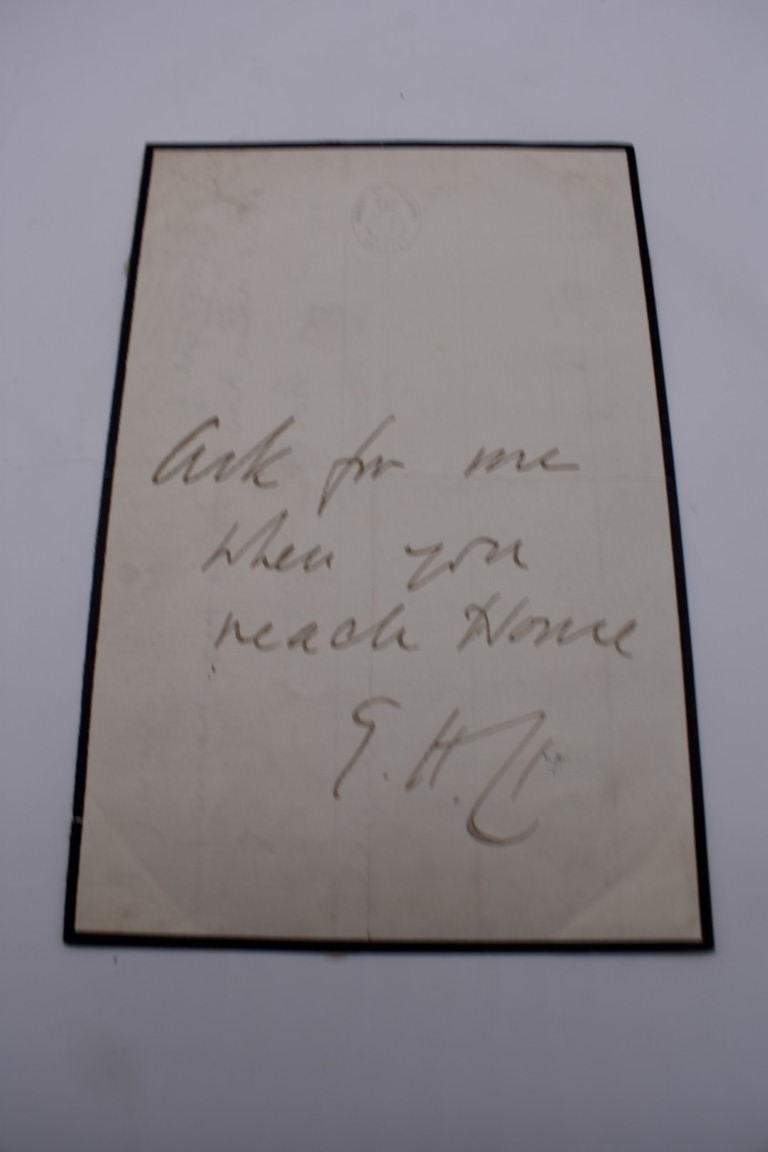 Ask for me
when you
reach House
E.H.